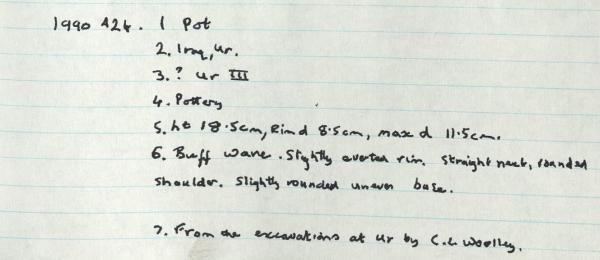 1990 A24. 1 Pot
2. Iraq, Ur.
3. ? Ur III
4. Pottery
5. ht 18.5cm, Rim d 8.5cm, max d 11.5cm.
6. Buff ware. Slightly everted rim. Straight neck, rounded
shoulder. Slightly rounded uneven base.
7. From the excavations at Ur by C.L. Woolley.